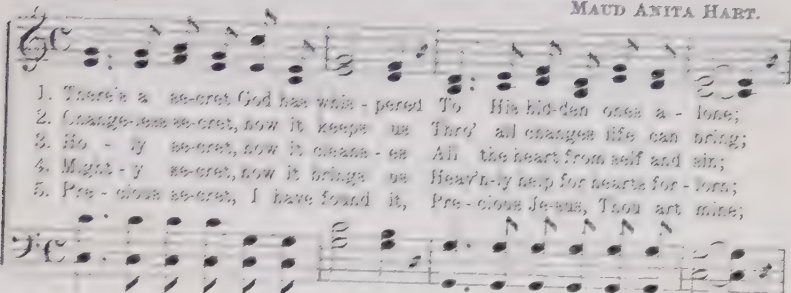 MAUD ANITA HART.
1. There's a se-cret God has whis - pered To His hid-den ones a - lone;
2. Change-less se-cret, how it keeps us Thro' all changes life can bring;
3. Ho - ly se-cret, how it cleans - es All the heart from self and sin;
4. Might - y se-cret, how it brings us Heav'n-ly help for hearts for - lorn;
5. Pre - cious se-cret, I have found it, Pre - cious Je-sus, Thou art mine;